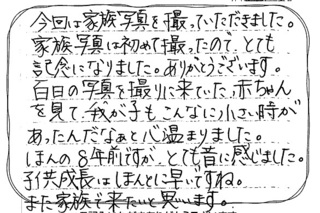 今回は家族写真を撮っていただきました。
家族写真は初めて撮ったので、とても
記念になりました。ありがとうございます。
百日の写真を撮りに来ていた、赤ちゃん
を見て、我が子もこんなに小さい時が
あったんだなぁと心温まりました。
ほんの8年前ですが、とても昔に感じました。
子供成長はほんとに早いですね。
また家族で来たいと思います。